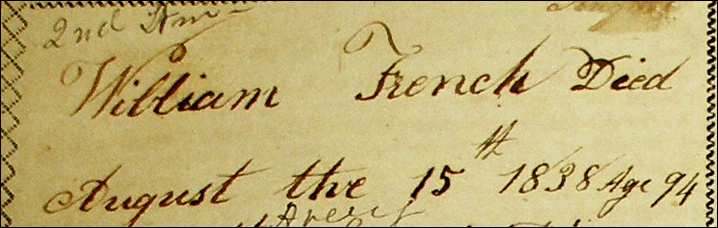 2nd
William French Died
August the 15th 1838 Age 94